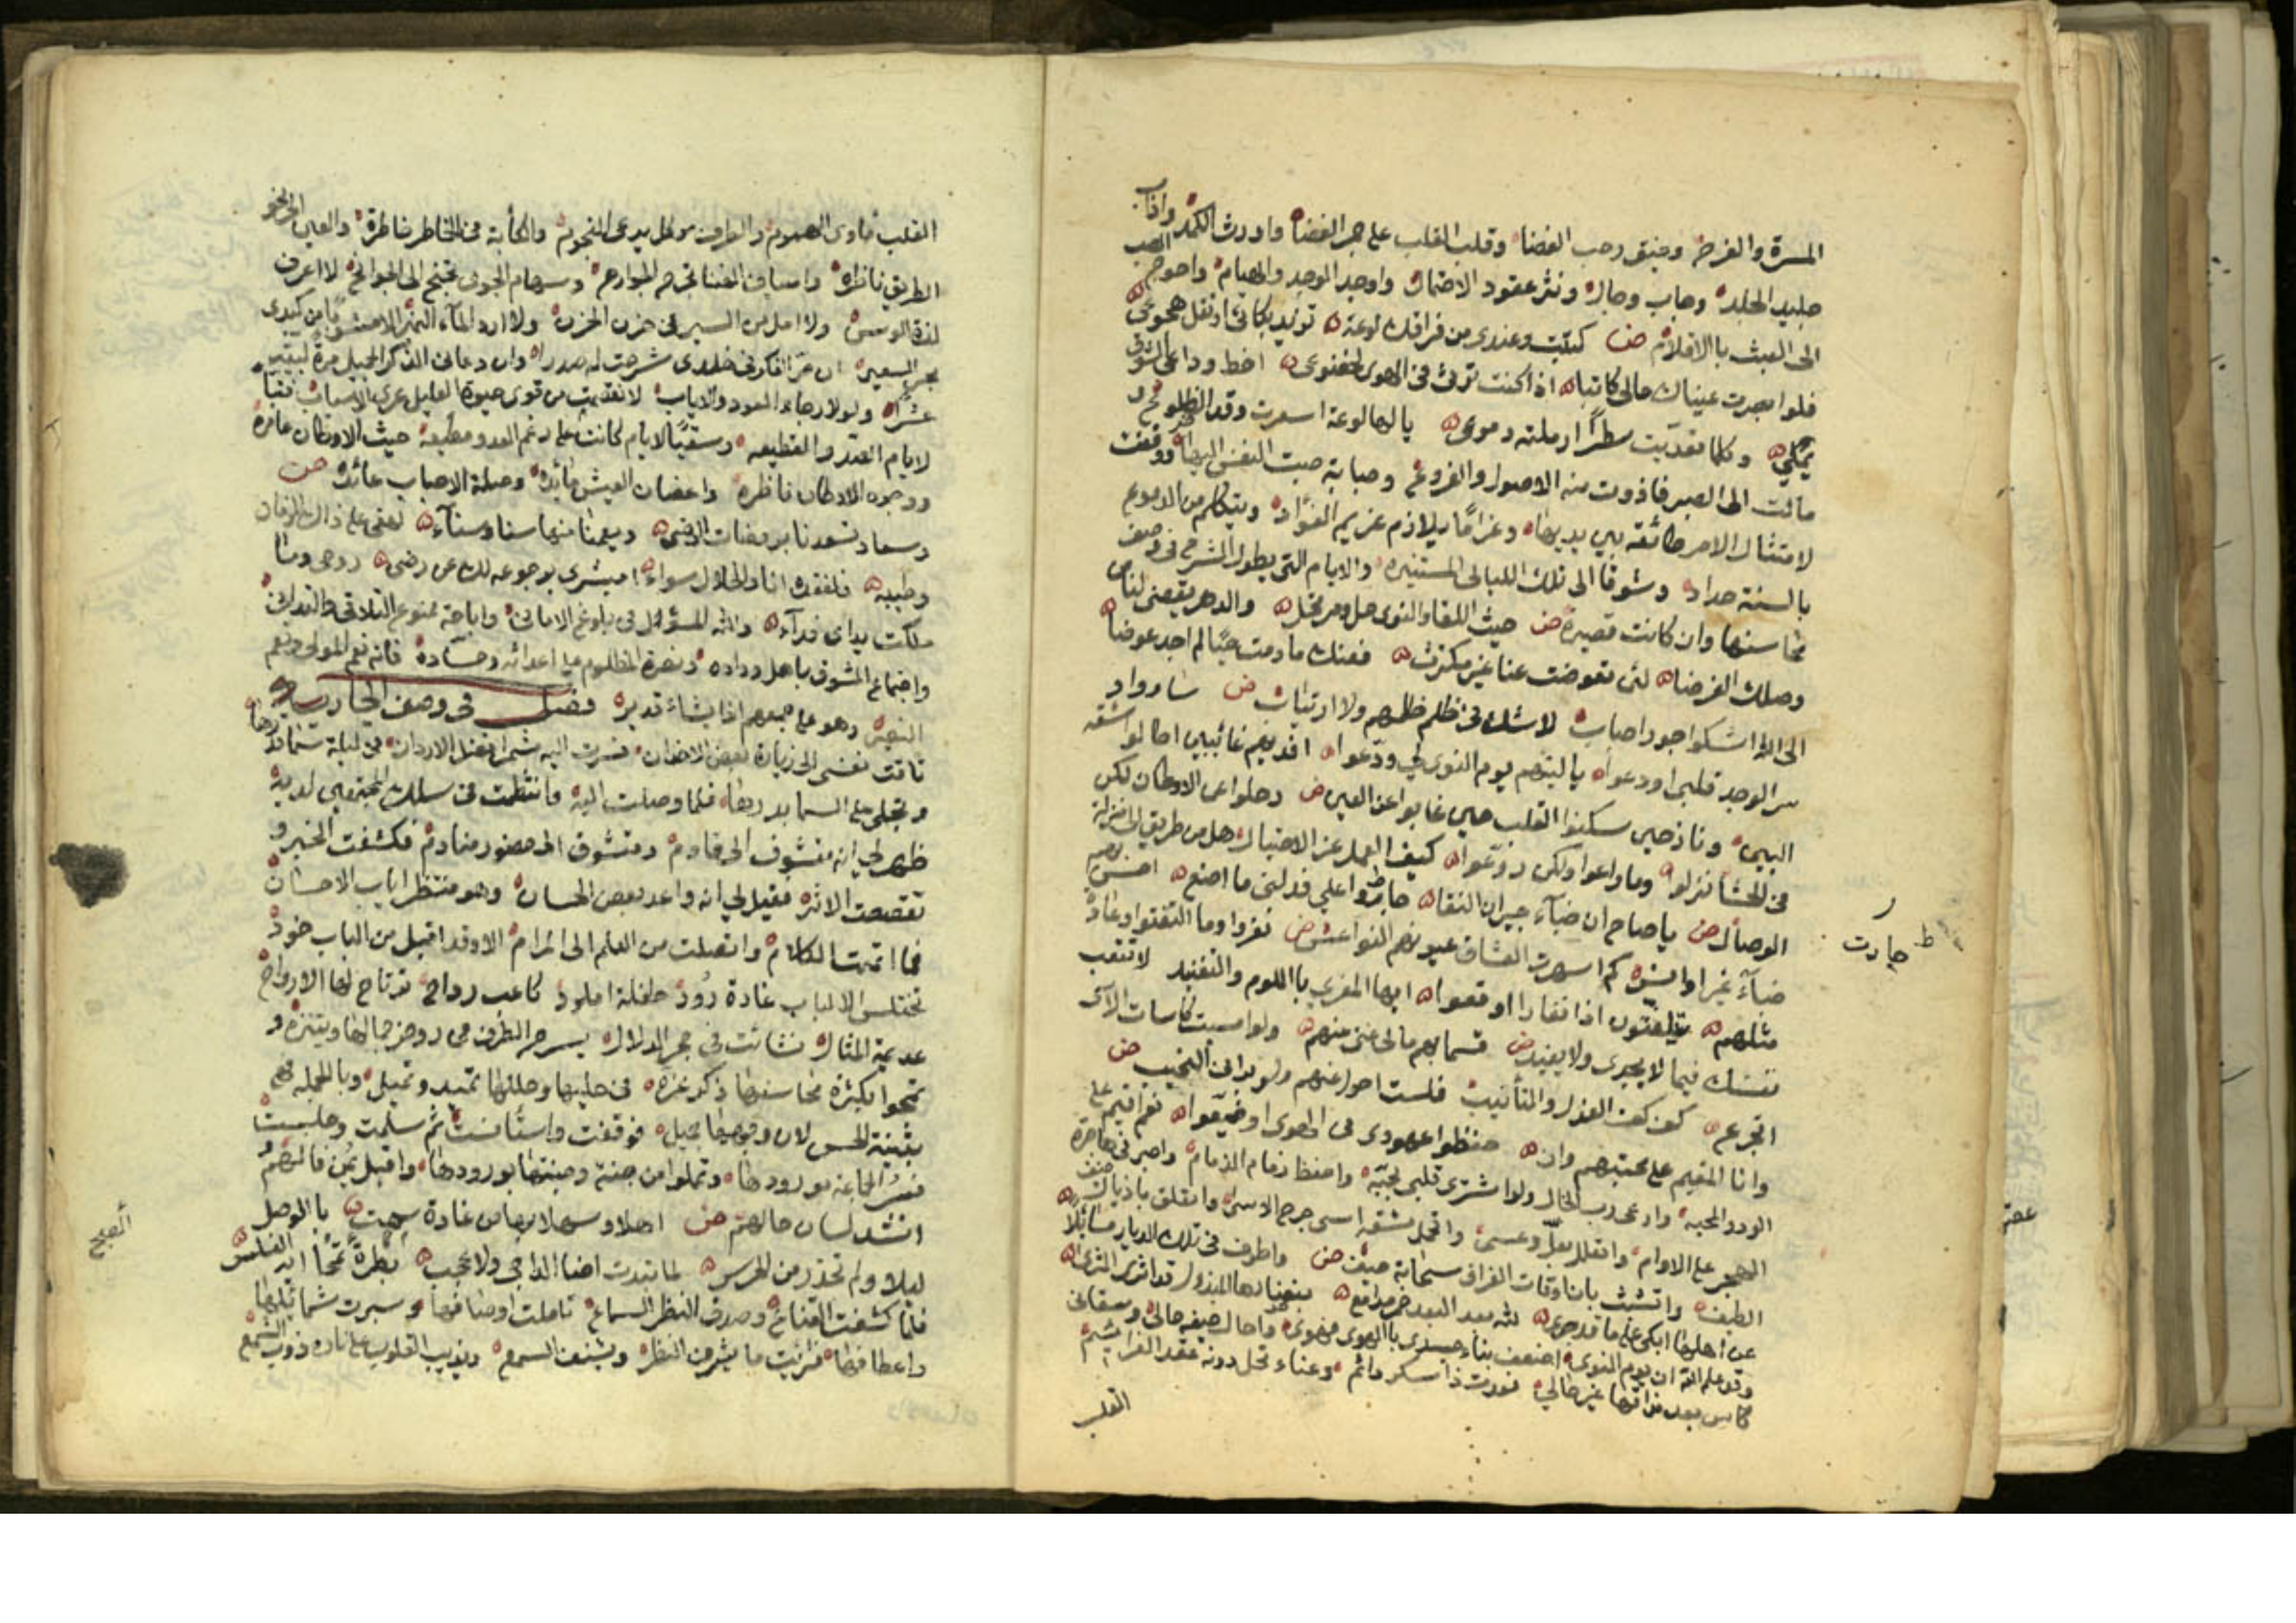 المسرة والفرح وضيق رحب الفضا وقلب القلب على جمر الغضا واورث الكمد واذاب
جليد الجلد وهاب وحال ونثر عقود الاحتمال واوجد الوجد والهيام واحوج الصب
الى العبث باالاقلام ض كتبت وعندي من فراقك لوعة تزيد بكائي او تقل هجوعي
فلو ابصرت عيناك حالي كاتبا اذا كنت ترثي في الهوى لخضوعي اخط وداعي الشوق
يملي وكلما تعديت سطرا ارملته دموعي يا لها لوعة اسعرت وقد الضلوع و
مالت الى الصبر فاذوت منه الاصول والفروع وصبابة صبت النفس اليها ووقفت
لامتثال الامر طائفة بين يديها وغراما يلازم غريم الفؤاد ويتكلم من الدموع
بالسنة حداد وشوقا الى تلك الليالي المستنيره والايام التي يطول الشرح في وصف
محاسنها وان كانت قصيرة ض حيث اللقا والنوى حل ومرتحل والدهر يقضي لنا من
وصلك الغرضا لئن تعوضت عنا غير مكترث فعنك ما دمت حيا لم اجد عوضا
الى الله اشكو جور احباب لاشك في ظلم ظلمهم ولا ارتياب ض ساروا و
سر الوجد قلبي اودعوا يا ليتهم يوم النوى لي ودعوا افديهم غائبين اطالوا شقة
البين ونازحين سكنوا القلب حين غابوا عن العين ض رحلوا عن الاوطان لكن
في الحشا نزلوا وما راعوا ولكن روعوا كيف العمل عز الاحتيال هل من طريق الى منزلة
الوصال ض يا صاح ان ظباء جيران النقا جاروا علي فدلني ما اصنع احسن بهم
ظباء غيرا وانس كم اسهرت العشاق عيونهم النواعس ض نفروا وما التفتوا وعادة
مثلهم يتلفتون اذا نفارا اوقعوا ايها المغري باللوم والتفنيد لا تتعب
نفسك فيما لا يجري ولا يفيد ض قسما بهم مالي غنى عنهم ولو اسيت كاسات الاسى
اتجرع كف كف العذل والتأنيب فلست احول عنهم ولو بدا في النجيب ض
وانا المقيم على محبتهم وان حفظوا عهودي في الهوى او ضيعوا نعم اقيم على
الود والمحبة وارعى رب الخال ولو اشترى قلبي بحبة واحفظ زمام الذمام واصبر في هاجرة
الهجر على الاوام واتعلل بعل وعسى واتحمل مشقة اسى جرح الاسى واتعلق باذيال ضيف
الطيف واتشبث بان اوقات الفراق سحابة صيف ض واطوف في تلك الديار مسائلا
عن اهلها ابكي على ما قد جرى لله بعد البعد خمر مدامع بعضابها المبذول قد اثرى الثرى
وقد علم الله ان يوم النوى اضعف بناء جسدي باالهوى فهوى واحال صيغة حالي وسقاني
كاس بعد مذاقها غير حالي فعدت ذا سكر دائم وعناء تحل دونه عقد العزائم
القلب
ط جارت
القلب ماوى الهموم والطرف موكل برعي النجوم والكأبة في الخاطر خاطرة والعين الى نحو
الطريق ناظرة واسياف العنا تجرح الجوارح وسهام الجوى تجنح الى الجوانح لا اعرف
لذة الوسن ولا امل من السير في حزن الحزن ولا ارد الماء النمير الا ممتزجا من كبدي
بحر السعير ان مر الفكر في خلدي شرحت له صدرا وان دعاني الذكر الجميل مرة لبيته
عشرا ولولا رجاء العود والاياب لانقطعت من قوى حيوة العليل عرى الاسباب فتبا
لايام الغدر والقطيعه وسقيا لايام كانت على رغم العدو مطيعة حيث الاوطان عامرة
ووجوه الاوطار ناظرة واغصان العيش مائدة وصلة الاحباب عائدة ض
وسعاد تسعدنا بروضات الرضى ويعمنا منها سنا وسناء لهفي على ذاك الزمان
وطيبه فلفقده انا والخلال سواء امبشري برجوعه لك عن رضى روحي وما
ملكت يداي فداء والله المسؤل في بلوغ الاماني واباحة ممنوع التلاقي والتداني
واجتماع المشوق باهل وداده ونصرة المظلوم على اعدائه وحساده فانه نعم المولى ونعم
النصير وهو على جمعهم اذا يشاء قدير فصل في وصف الجارية
تاقت نفسي الى زيارة بعض الاخوان فسرت اليه مشمرا فضل الاردان في ليلة سما قدرها
وتجلى على السما بدرها فلما وصلت اليه وانتظمت في سلك المجتمعين لديه
ظهر لي انه متشوف الى قادم ومتشوق الى حضور منادم فكشفت الخبر و
تقصصت الاثر فقيل لي انه واعد بعض الحسان وهو منتظر اياب الاحسان
فما اتممت الكلام وانفصلت من العلم الى المرام الا وقد اقبل من الباب خود
تختلس الالباب غادة رود طفلة املود كاعب رداح ترتاح لها الارواح
عديمة المثال نشائت في حجر الدلال يسرح الطرف في روض جمالها ويتنزه و
تمحو ابكثرة محاسنها ذكر عزه في حليها وحللها تميد وتميل وبالجمله فهي
بثينة الحسن لان وجهها جميل فوقفت واستأنست ثم سلمت وجلست
فسر الجماعة بورودها وتملوا من جنة وجنتها بورودها واقبل يمن فالهم و
انشد لسان حالهم ض اهلا وسهلا بها من غادة سمحت باالوصل
ليلا ولم تحذر من الحرس لما تبدت اضا الداجي ولا عجب بطرة تمحا اية الغلس
فلما كشفت القناع وصدق النظر السماع تاملت اوصافها وسبرت شمائلها
واعطافها فرأيت ما يشرف النظر ويشنف السمع ويذيب القلوب على ناره ذوب الشمع